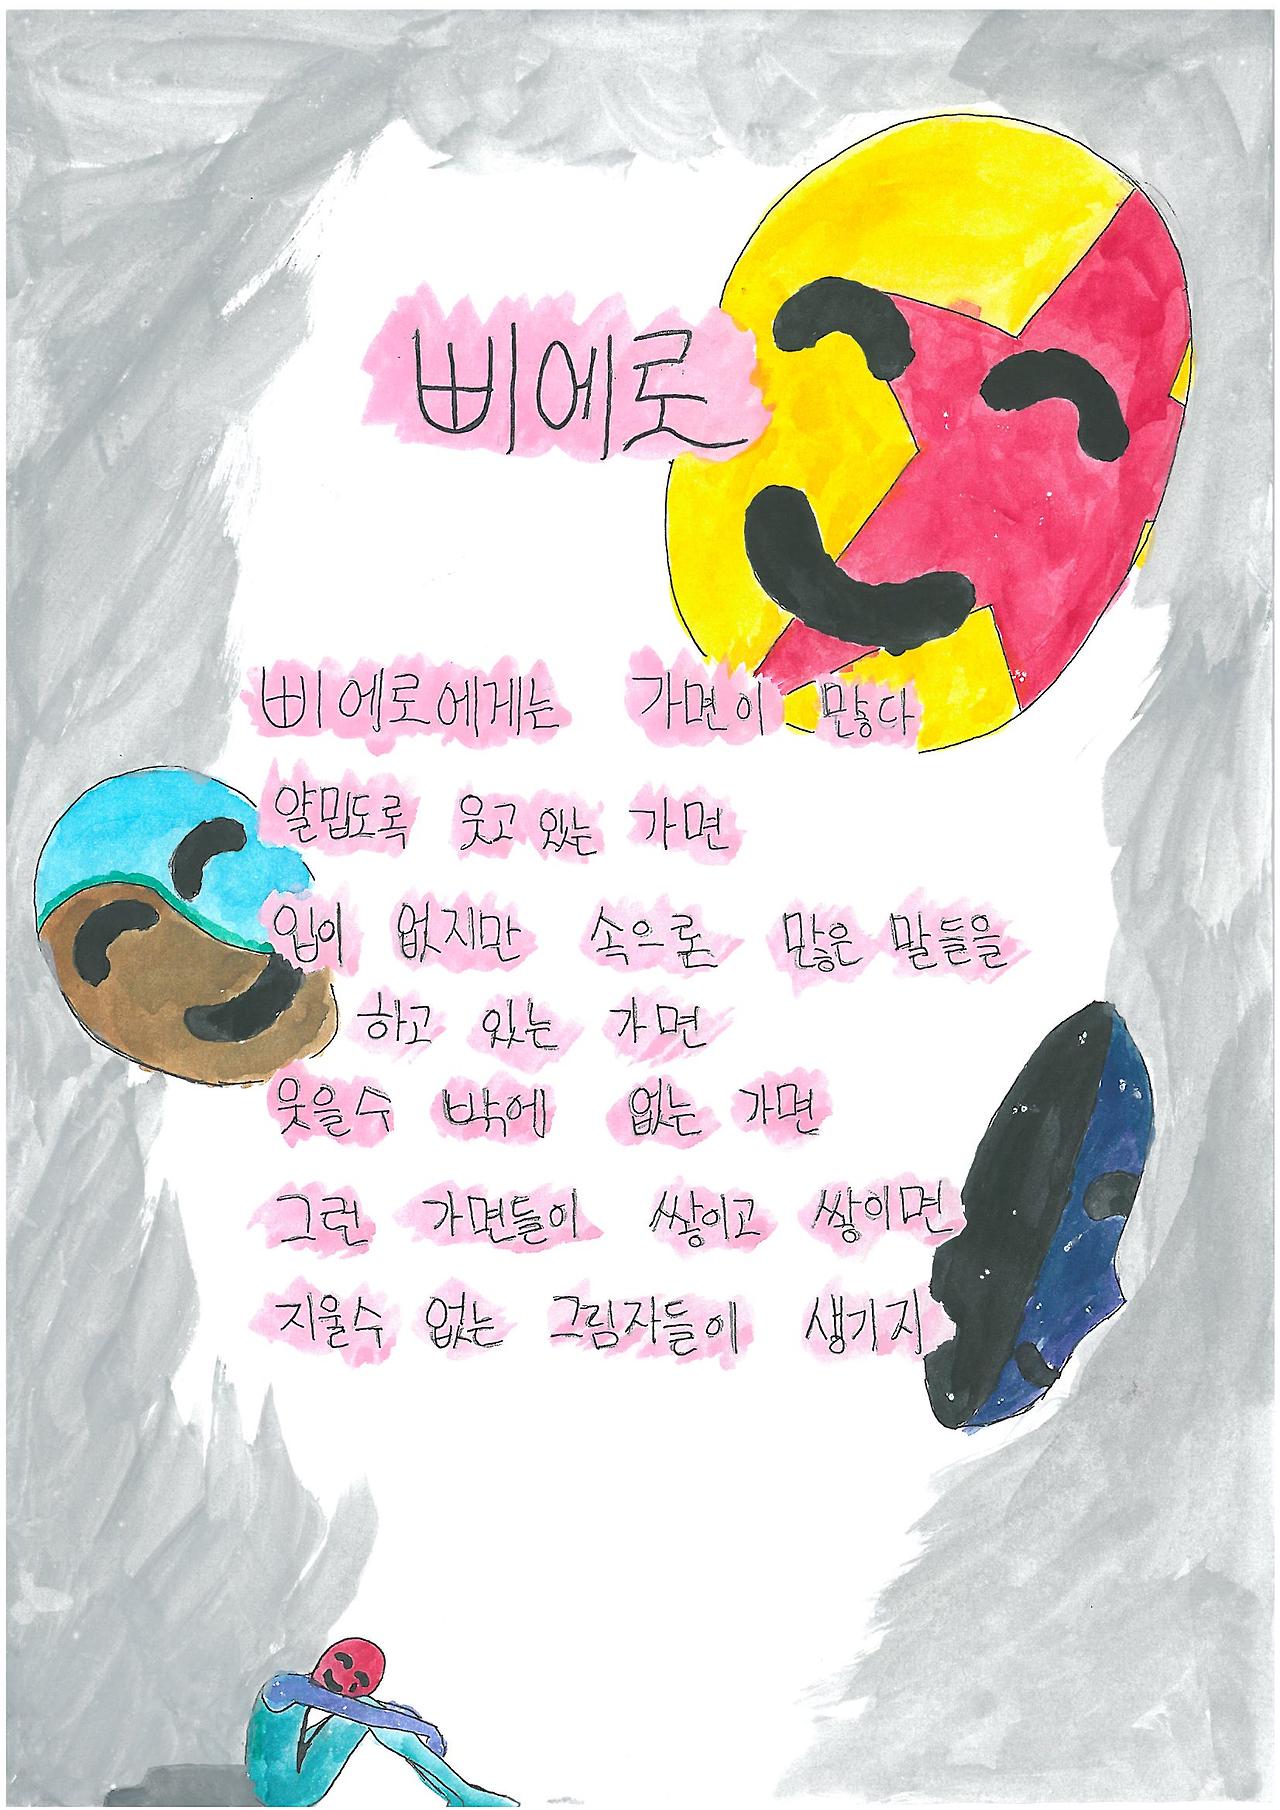 삐에로
삐에로에게는 가면이 많다
얄밉도록 웃고 있는 가면
입이 없지만 속으론 많은 말들을
하고 있는 가면
웃을수 밖에 없는 가면
그런 가면들이 쌓이고 쌓이면
지울수 없는 그림자들이 생기지